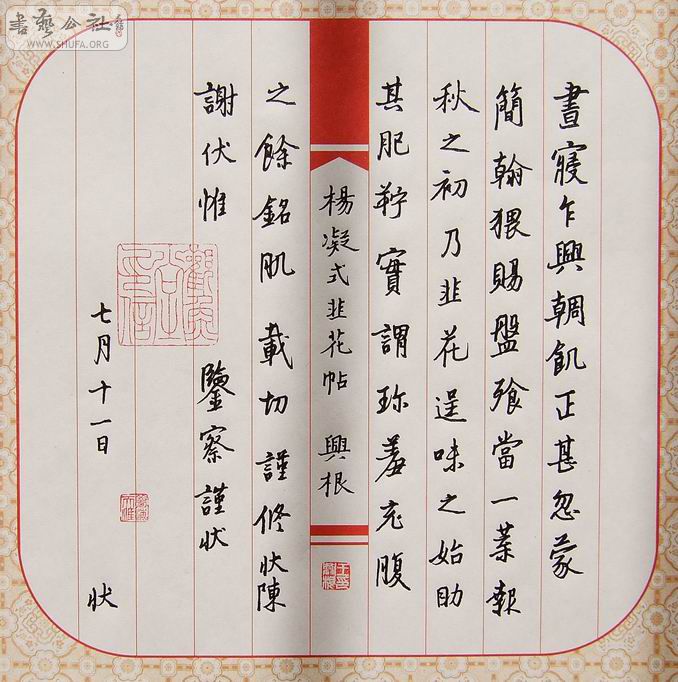 書藝公社
WWW.SHUFA.ORG
晝寢乍興輖飢正甚忽蒙
簡翰猥賜盤飧當一葉報
秋之初乃韭花逞味之始助
其肥羜實謂珎羞充腹
楊凝式韭花帖 興根
之餘銘肌載切謹修狀陳
謝伏惟 鑒察謹狀
七月十一日
狀